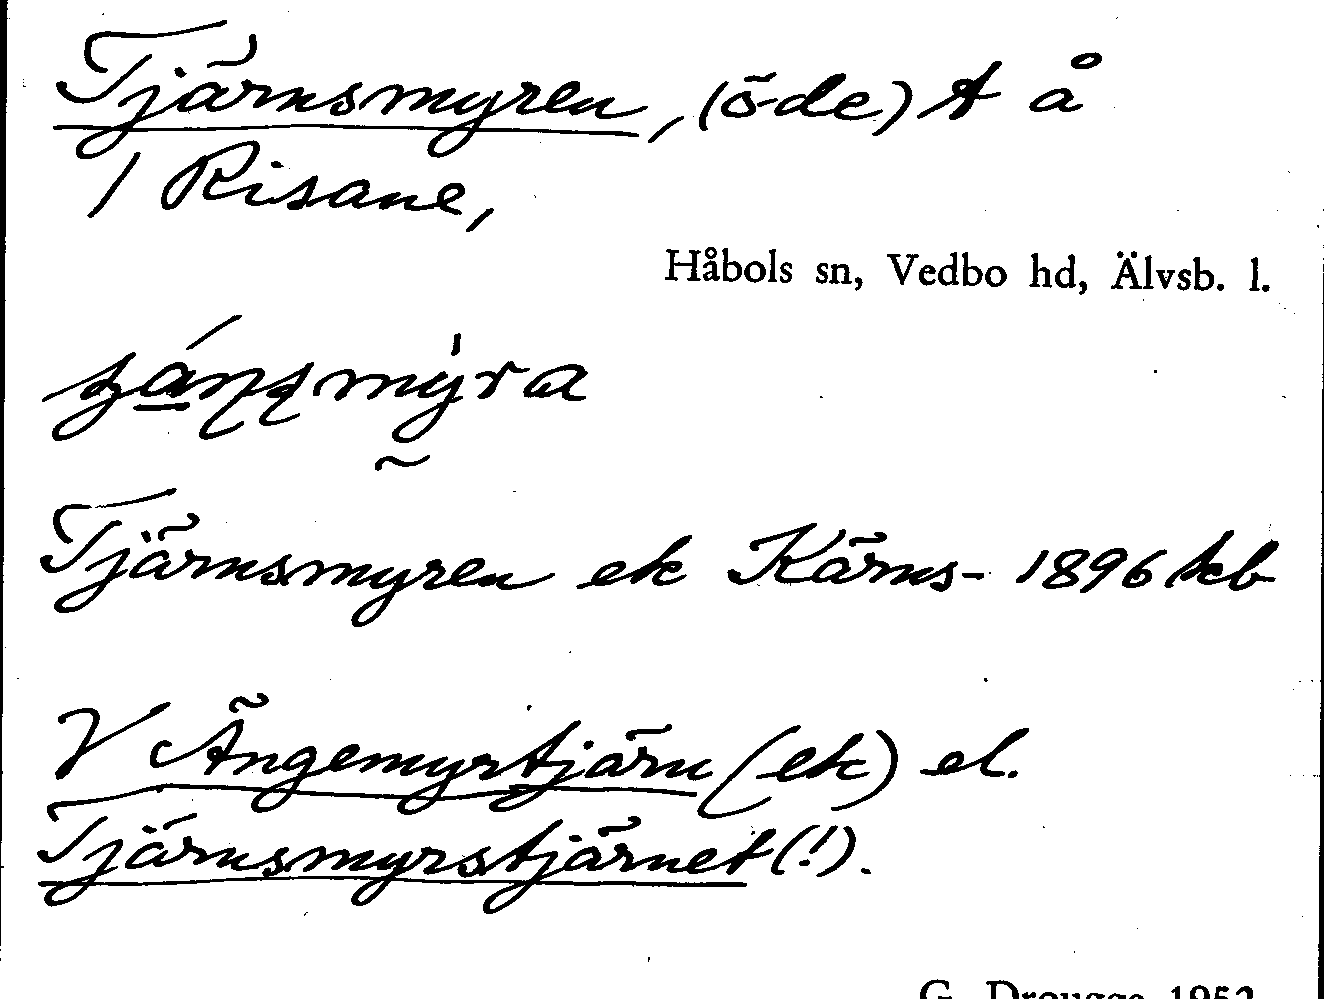 Tjärnsmyren, (öde) t å
1 Risane,
Håbols sn, Vedbo hd, Älvsb. l.
Tjärnsmyren ek Kärns- 1896 kb
V Ängemyrstjärn (ek) el.
Tjärnsmyrstjärnet (!).
G. Drougge 1952